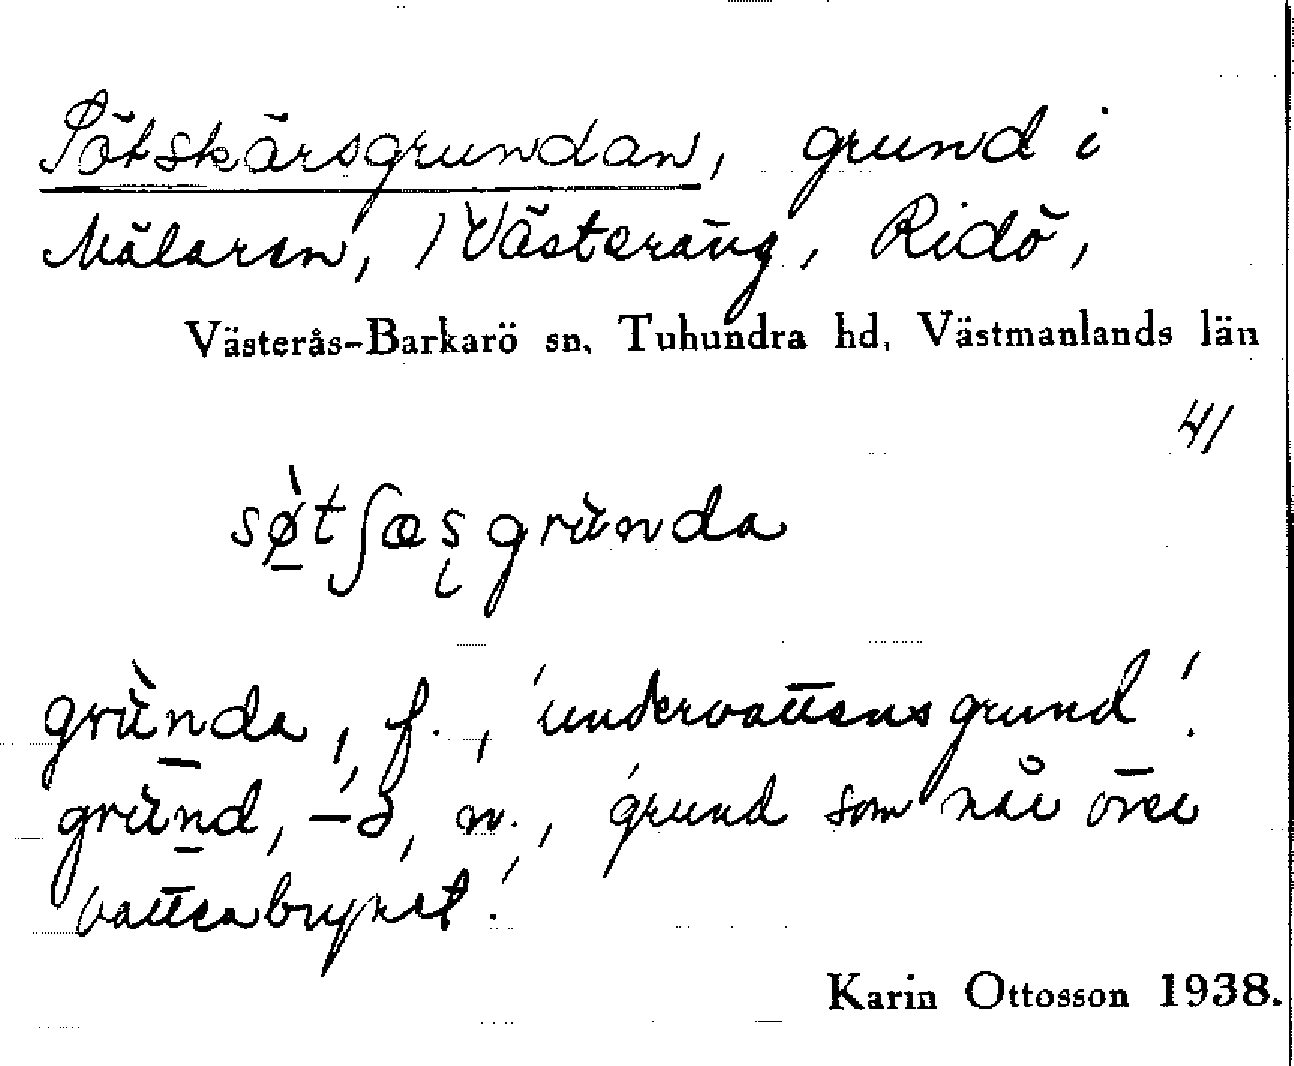 Sötskärsgrundan, grund i
Mälaren, / Västeräng, Ridö,
Västerås-Barkarö sn, Tuhundra hd, Västmanlands län
41
sø̀tʃæʂgrùnda
grùnda, f., 'undervattensgrund'.
grùnd, -ə, n., 'grund som når över
vattenbrynet'.
Karin Ottosson 1938.